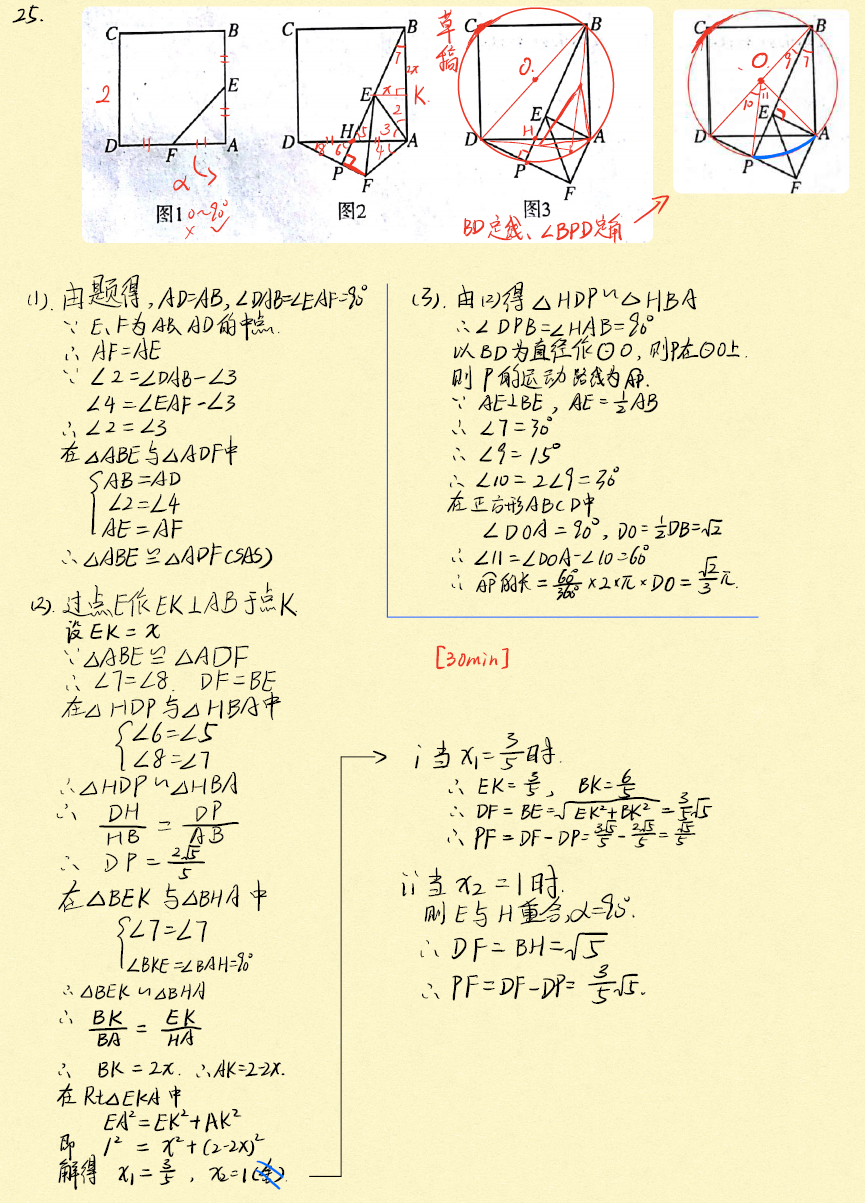 25.
C B
2
E
D F A
α
图1
0~90°
×
✓
C B
7
2x
E x K
2
H 5 3 1
D 8 6 4 A
P
F
图2
草稿
C B
O.
E
D H A
P
F
图3
BD定线、∠BPD定角
C B
O.
9 7
10 11
E
D A
P
F
(1). 由题得, AD=AB, ∠DAB=∠EAF=90°
∵ E、F为AB、AD的中点.
∴ AF=AE
∵ ∠2=∠DAB-∠3
∠4=∠EAF-∠3
∴ ∠2=∠3
在△ABE与△ADF中
AB=AD
∠2=∠4
AE=AF
∴△ABE≌△ADF(SAS)
(2). 过点E作EK⊥AB于点K
设EK=x
∵△ABE≌△ADF
∴ ∠7=∠8. DF=BE
在△HDP与△HBA中
∠6=∠5
∠8=∠7
∴△HDP∽△HBA
∴ DH/HB = DP/AB
∴ DP=2√5/5
在△BEK与△BHA中
∠7=∠7
∠BKE=∠BAH=90°
∴△BEK∽△BHA
∴ BK/BA = EK/HA
∴ BK=2x. ∴AK=2-2x.
在Rt△EKA中
EA²=EK²+AK²
即 1²=x²+(2-2x)²
解得 x₁=3/5, x₂=1(舍)
(3). 由(2)得△HDP∽△HBA
∴∠DPB=∠HAB=90°
以BD为直径作⊙O, 则P在⊙O上.
则P的运动路线为AP.
∵ AE⊥BE, AE=1/2AB
∴ ∠7=30°
∴ ∠9=15°
∴ ∠10=2∠9=30°
在正方形ABCD中
∠DOA=90°, DO=1/2DB=√2
∴ ∠11=∠DOA-∠10=60°
∴ AP的长=60°/360°×2×π×DO=√2/3π.
[30min]
i当x₁=3/5时.
∴ EK=3/5, BK=6/5
∴ DF=BE=√EK²+BK²=3/5√5
∴ PF=DF-DP=3√5/5-2√5/5=√5/5
ii当x₂=1时.
则E与H重合,α=90°.
∴ DF=BH=√5
∴ PF=DF-DP=3/5√5.